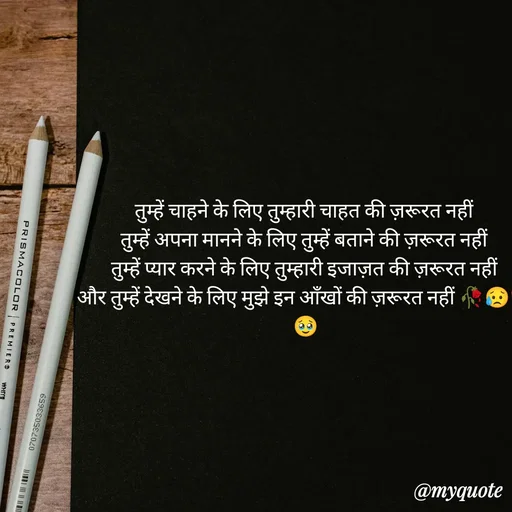 तुम्हें चाहने के लिए तुम्हारी चाहत की ज़रूरत नहीं
तुम्हें अपना मानने के लिए तुम्हें बताने की ज़रूरत नहीं
तुम्हें प्यार करने के लिए तुम्हारी इजाज़त की ज़रूरत नहीं
और तुम्हें देखने के लिए मुझे इन आँखों की ज़रूरत नहीं 🥀😥
🥹
PRISMACOLOR | PREMIER
@myquote